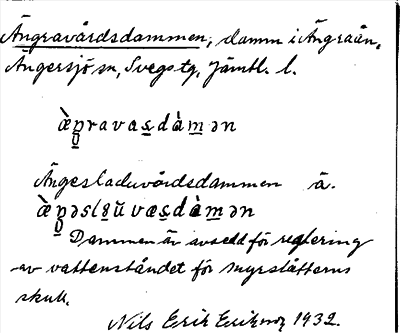 Ängravårdsdammen, damm i Ängraån,
Ängersjö sn, Svegs tg, Jämtl. l.
æ̀ŋravas̲dàm̲ən
Ängesladuvårdsdammen ä.
æ̀ŋəslŭvæs̲dàm̲ən
Dammen är avsedd för reglering
av vattenståndet för myrslåtterns
skull.
Nils Erik Eriksson 1932.